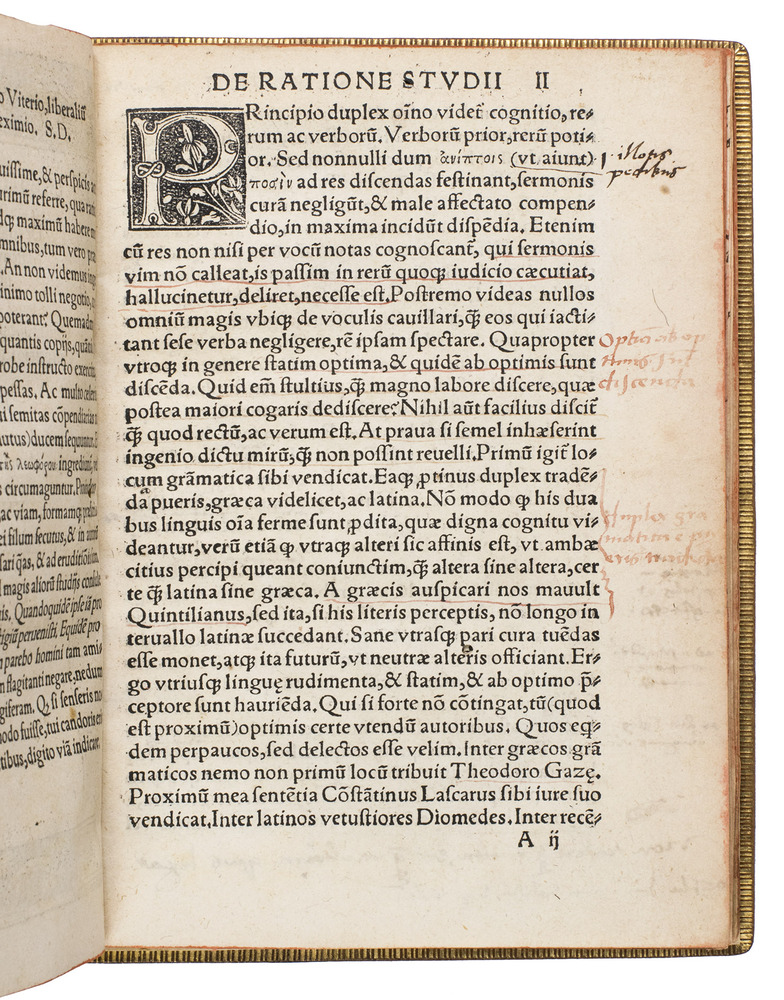 o Viterio, liberaliũ
eximio. S.D.
uissime, & perspicis
rimũ referre, qua
dqꝫ maximũ habere
mnibus, tum vero
. An non videmus
inimo tolli negotio,
poterant? Quemadm
quantis copijs, quãt
probe instructo exercitu
pessas. Ac multo
ui semitas cõpendiarias
autus) ducem sequuntur
λεωφόρου ingrediũt
s circumaguntur. Princi
ac viam, formamqꝫ
ei filum secutus, & in
sari q̃as, & ad eruditionem
l magis alioru studijs
nis. Quandoquidẽ ipse iã pro
peruenisti. Equidẽ pro
n parebo homini tam amico
n flagitanti negare, nedum
giferam. Q̃ si senseris
modo fuisse, tui candoris
tibus, digito viã indicare.
DE RATIONE STVDII II
PRincipio duplex oĩno videt̃ cognitio, re⸗
rum ac verborũ. Verborũ prior, rerũ poti⸗
or. Sed nonnulli dum ἀνίπτοις (vt aiunt)
ποσὶν ad res discendas festinant, sermonis
curã negligũt, & male affectato compen⸗
dio, in maxima incidũt dispẽdia. Etenim
cũ res non nisi per vocũ notas cognoscant̃, qui sermonis
vim nõ calleat, is passim in rerũ quoqꝫ iudicio cæcutiat,
hallucinetur, deliret, necesse est. Postremo videas nullos
omniũ magis vbiqꝫ de voculis cauillari, q̃ꝫ eos qui iacti⸗
tant sese verba negligere, rẽ ipsam spectare. Quapropter
vtroqꝫ in genere statim optima, & quidẽ ab optimis sunt
discẽda. Quid em̃ stultius, q̃ꝫ magno labore discere, quæ
postea maiori cogaris dediscere? Nihil aũt facilius discit̃
q̃ꝫ quod rectũ, ac verum est. At praua si semel inhæserint
ingenio dictu mirũ, q̃ꝫ non possint reuelli. Primũ igit̃ lo⸗
cum grãmatica sibi vendicat. Eaqꝫ ꝓtinus duplex tradẽ⸗
da pueris, græca videlicet, ac latina. Nõ modo ꝙ his dua
bus linguis oĩa ferme sunt ꝓdita, quæ digna cognitu vi⸗
deantur, verũ etiã ꝙ vtraqꝫ alteri sic affinis est, vt ambæ
citius percipi queant coniunctim, q̃ꝫ altera sine altera, cer
te q̃ꝫ latina sine græca. A græcis auspicari nos mauult
Quintilianus, sed ita, si his literis perceptis, nõ longo in
teruallo latinæ succedant. Sane vtrasqꝫ pari cura tuẽdas
esse monet, atqꝫ ita futurũ, vt neutræ alteris officiant. Er⸗
go vtriusqꝫ linguę rudimenta, & statim, & ab optimo p̃⸗
ceptore sunt hauriẽda. Qui si forte nõ cõtingat, tũ (quod
est proximũ) optimis certe vtendũ autoribus. Quos eq̃⸗
dem perpaucos, sed delectos esse velim. Inter græcos grã
maticos nemo non primũ locũ tribuit Theodoro Gazę.
Proximũ mea sentẽtia Cõstãtinus Lascarus sibi iure suo
vendicat. Inter latinos vetustiores Diomedes. Inter recẽ⸗
A ij
illotis
pedibus
Optĩa ab op
timis sũt
discenda
Duplex grã
matica